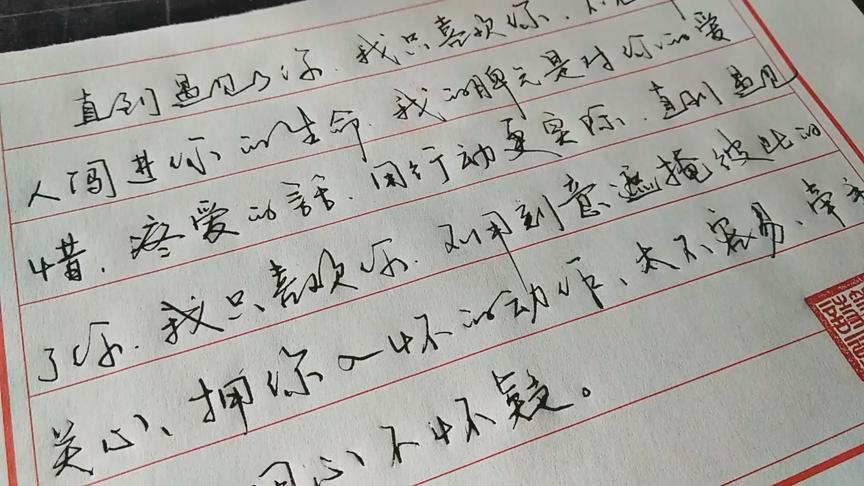 直到遇见了你.我只喜欢你.不
人闯进你的生命.我的脾气是对你的爱
惜.疼爱的話.用行动更实际.直到遇见
了你.我只喜欢你.不用刻意遮掩彼此的
关心、拥你入怀的动作、太不容易、牵
同心不怀疑。